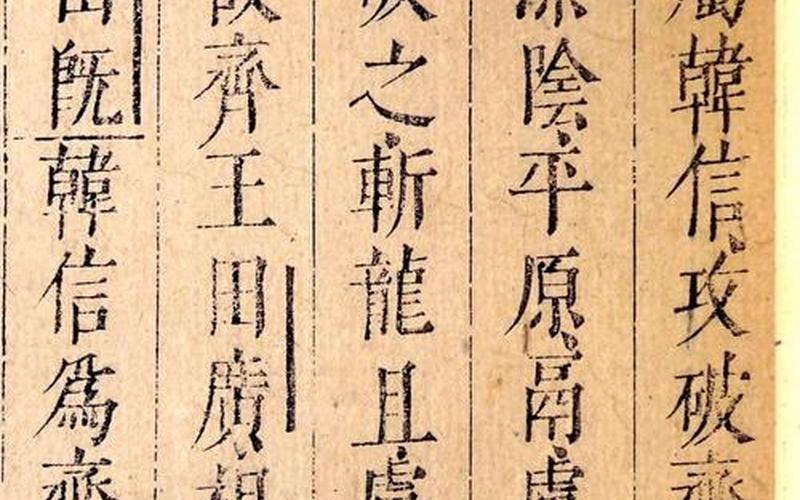 韓信攻破齊
陰平原鬲
之斬龍且
齊王田廣相
旣韓信爲齊